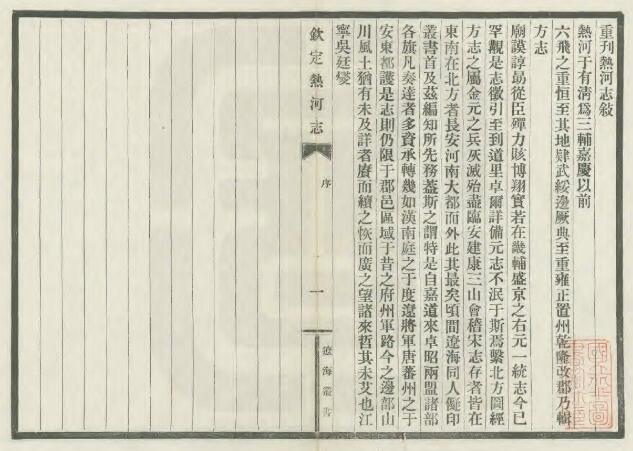 重刊熱河志敘
熱河于有清爲三輔嘉慶以前
六飛之重恒至其地肄武綏邊厥典至重雍正置州乾隆改郡乃輯
方志
廟謨諄勗從臣殫力賅博翔實若在畿輔盛京之右元一統志今已
罕觀是志徵引至到道里卓爾詳備元志不泯于斯焉繫北方圖經
方志之屬金元之兵灰滅殆盡臨安建康三山會稽宋志存者皆在
東南在北方者長安河南大都而外此其最矣頃間遼海同人儗印
叢書首及茲編知所先務蓋斯之謂特是自嘉道來卓昭兩盟諸部
各旗凡奏達者多資承轉幾如漢南庭之于度遼將軍唐蕃州之于
安東都護是志則仍限于郡邑區域于昔之府州軍路今之邊部山
川風土猶有未及詳者賡而續之恢而廣之望諸來哲其未艾也江
寧吳廷燮
欽定熱河志
序
一
遼海叢書